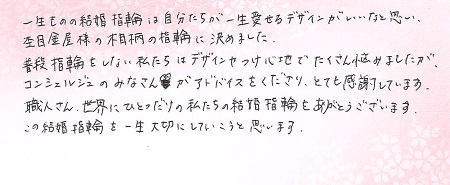 一生ものの結婚指輪は自分たちが一生愛せるデザインがいいなと思い、
杢目金屋様の木目柄の指輪に決めました。
普段指輪をしない私たちはデザインやつけ心地でたくさん悩みましたが、
コンシェルジュのみなさんがアドバイスをくださり、とても感謝しています。
職人さん、世界にひとつだけの私たちの結婚指輪をありがとうございます。
この結婚指輪を一生大切にしていこうと思います。